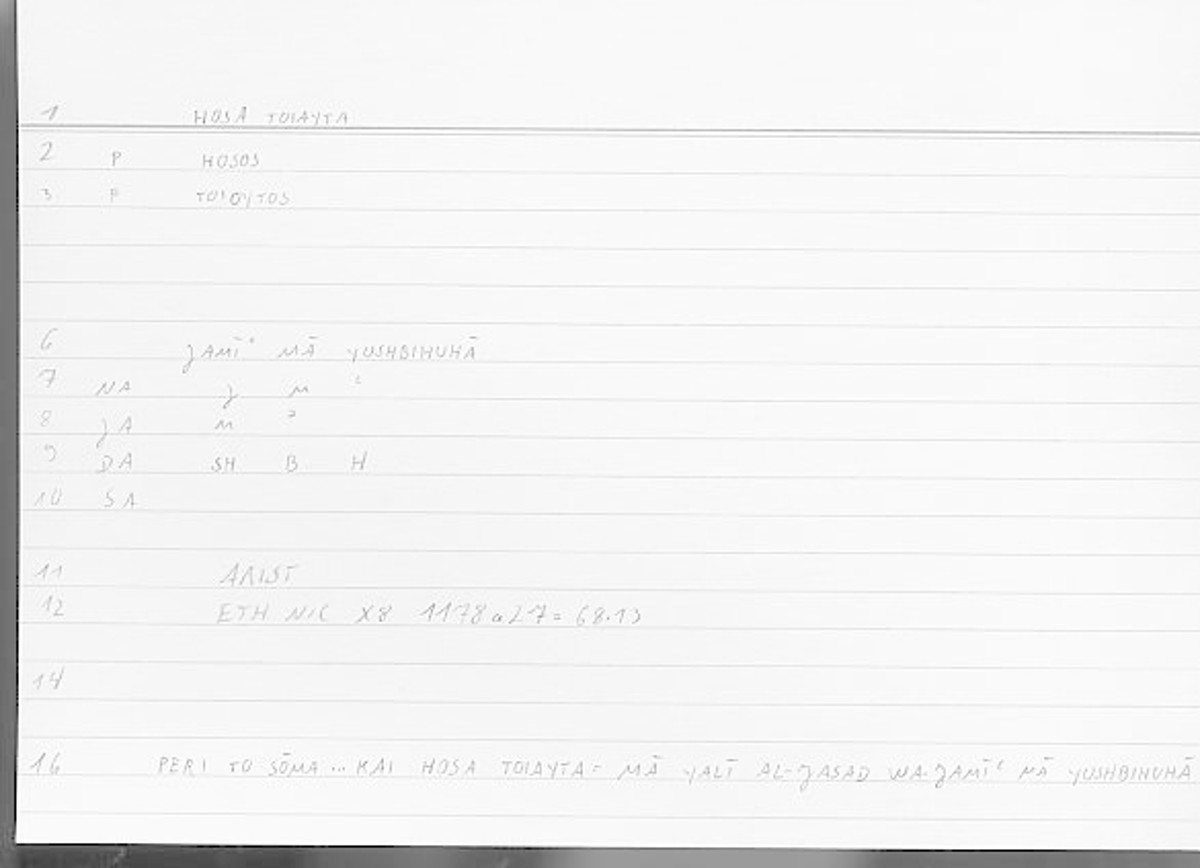 1 HOSA TOIAYTA
2 P HOSOS
3 P TOIOYTOS
6 JAMĪʿ MĀ YUSHBIHUHĀ
7 NA J M ʿ
8 JA M ʾ
9 DA SH B H
10 SA
11 ARIST
12 ETH NIC X8 1178a27= 68.13
14
16 PERI TO SŌMA ... KAI HOSA TOIAYTA= MĀ YALĪ AL-JASAD WA-JAMĪʿ MĀ YUSHBIHUHĀ